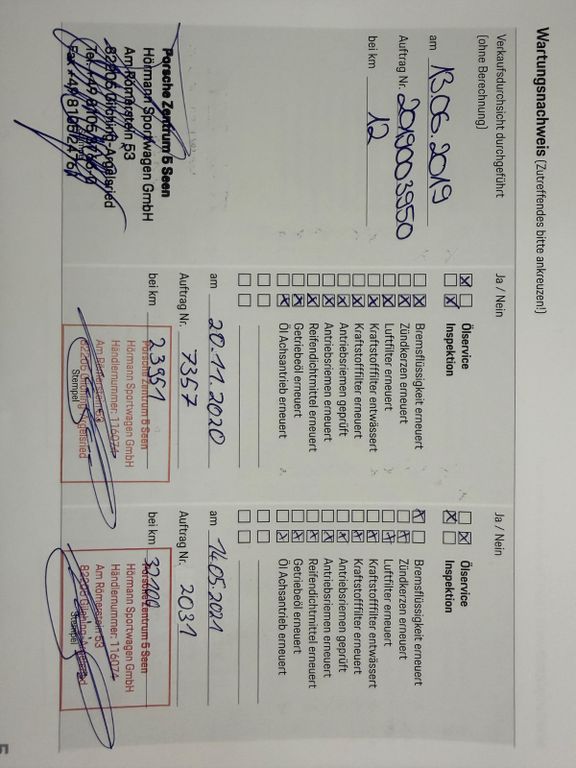 Wartungsnachweis (Zutreffendes bitte ankreuzen!)
Verkaufsdurchsicht durchgeführt
(ohne Berechnung)
am 13.06.2019
Auftrag Nr. 2019003950
bei km 12
Porsche Zentrum 5 Seen
Hörmann Sportwagen GmbH
Am Römerstein 53
82205 Gilching-Argelsried
Tel. +49 8105
Fax +49 8105
Ja / Nein
Ölservice
Inspektion
Bremsflüssigkeit erneuert
Zündkerzen erneuert
Luftfilter erneuert
Kraftstofffilter entwässert
Kraftstofffilter erneuert
Antriebsriemen geprüft
Antriebsriemen erneuert
Reifendichtmittel erneuert
Getriebeöl erneuert
Öl Achsantrieb erneuert
am 20.11.2020
Auftrag Nr. 7357
bei km 23951
Porsche Zentrum 5 Seen
Hörmann Sportwagen GmbH
Händlernummer: 116074
Am Römerstein 53
82205 Gilching-Argelsried
Stempel
Ja / Nein
Ölservice
Inspektion
Bremsflüssigkeit erneuert
Zündkerzen erneuert
Luftfilter erneuert
Kraftstofffilter entwässert
Kraftstofffilter erneuert
Antriebsriemen geprüft
Antriebsriemen erneuert
Reifendichtmittel erneuert
Getriebeöl erneuert
Öl Achsantrieb erneuert
am 14.05.2021
Auftrag Nr. 2031
bei km
Porsche Zentrum 5 Seen
Hörmann Sportwagen GmbH
Händlernummer: 116074
Am Römerstein 53
82205 Gilching-Argelsried
Stempel